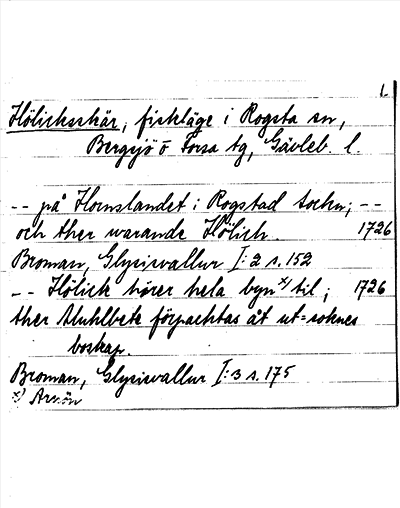 1.
Hölicksskär, fiskläge i Rogsta sn,
Bergsjö o Forsa tg, Gävleb. l.
-- på Hornslandet i Rogstad sochn; --
och ther warande Hölich. 1726
Broman, Glysisvallur I:2 s. 152
-- Hölick hörer hela byn x) til; 1726
ther Muhlbete förpachtas åt ut=soknes
boskap.
Broman, Glysisvallur I:3 s. 175
x) Arnön